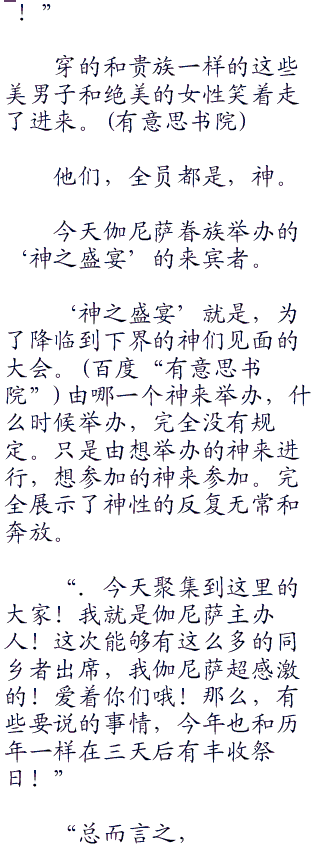 ！”
穿的和贵族一样的这些
美男子和绝美的女性笑着走
了进来。(有意思书院)
他们，全员都是，神。
今天伽尼萨眷族举办的
‘神之盛宴’的来宾者。
‘神之盛宴’就是，为
了降临到下界的神们见面的
大会。(百度“有意思书
院”)由哪一个神来举办，什
么时候举办，完全没有规
定。只是由想举办的神来进
行，想参加的神来参加。完
全展示了神性的反复无常和
奔放。
“．今天聚集到这里的
大家！我就是伽尼萨主办
人！这次能够有这么多的同
乡者出席，我伽尼萨超感激
的！爱着你们哦！那么，有
些要说的事情，今年也和历
年一样在三天后有丰收祭
日！”
“总而言之，